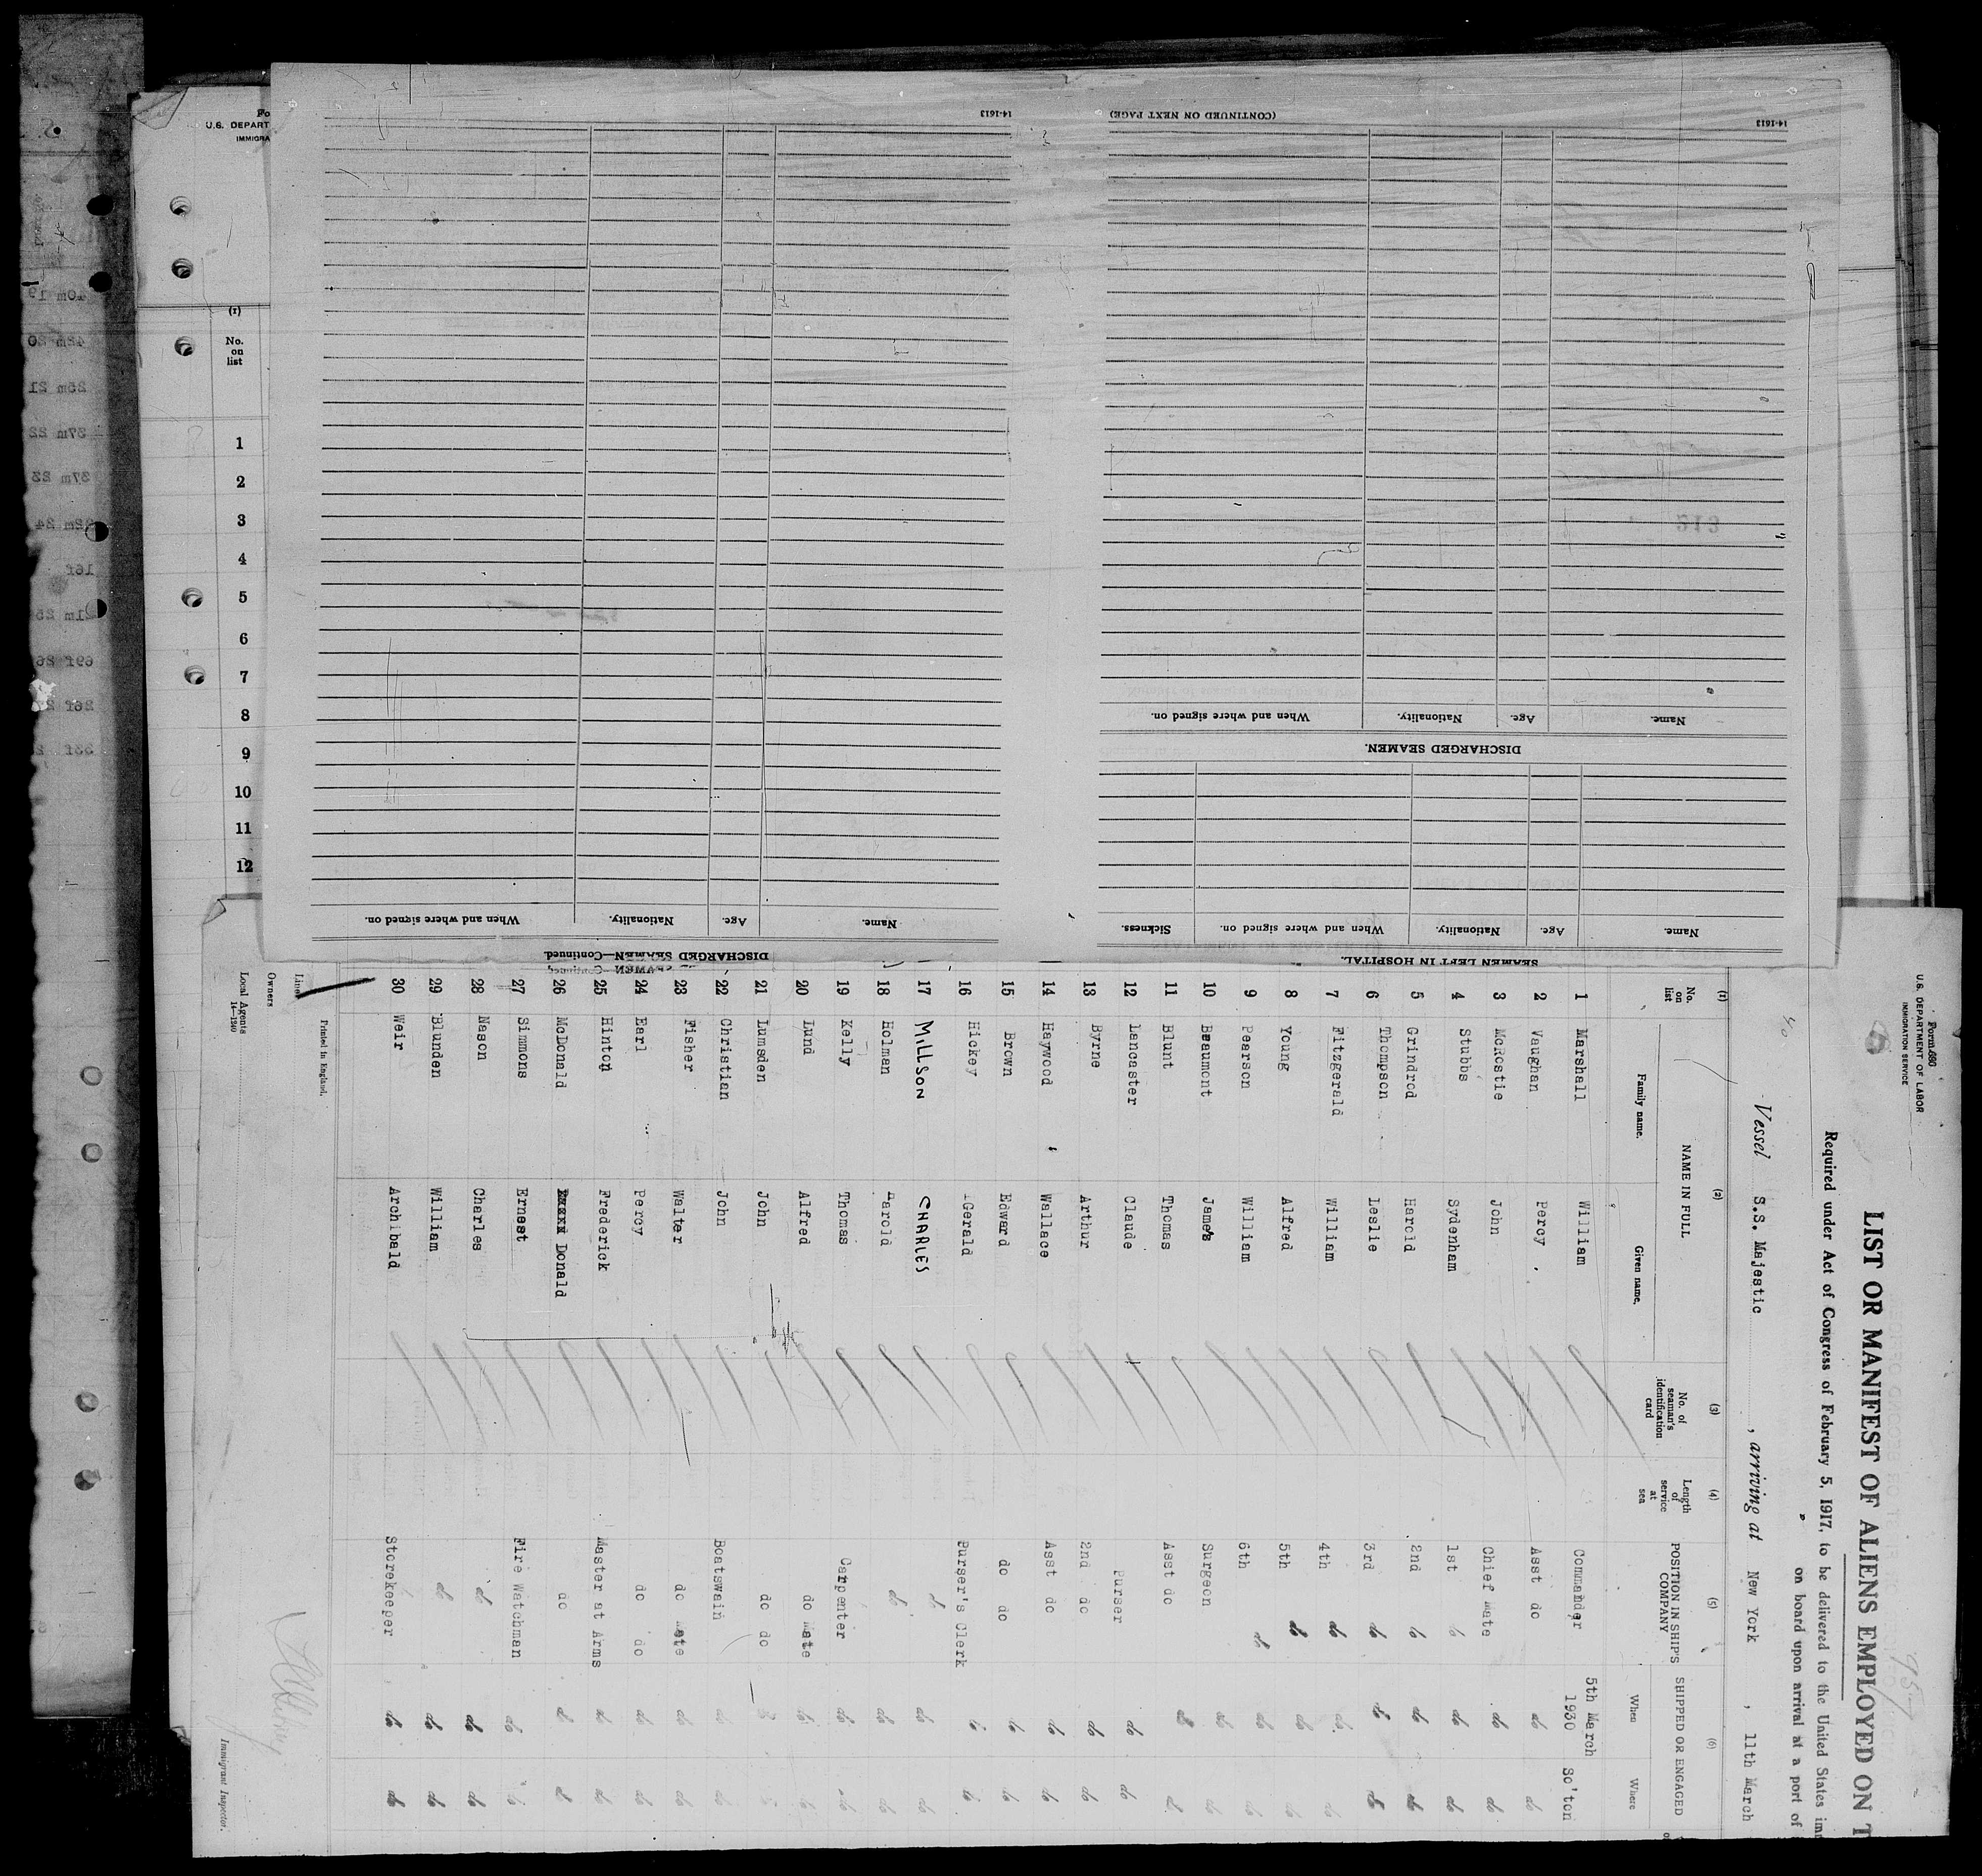 Form 680
U.S. DEPARTMENT OF LABOR
IMMIGRATION SERVICE
LIST OR MANIFEST OF ALIENS EMPLOYED ON T
Required under Act of Congress of February 5, 1917, to be delivered to the United States imm
on board upon arrival at a port of
Vessel S.S. Majestic , arriving at New York , 11th March
(1) (2) (3) (4) (5) (6)
No. on list NAME IN FULL No. of seaman's identification card Length of service at sea POSITION IN SHIP'S COMPANY SHIPPED OR ENGAGED
Family name. Given name. When Where
1 Marshall William Commander 5th March 1930 So'ton
2 Vaughan Percy Asst do do do
3 McRostie John Chief Mate do do
4 Stubbs Sydenham 1st do do do
5 Grindrod Harold 2nd do do do
6 Thompson Leslie 3rd do do do
7 Fitzgerald William 4th do do do
8 Young Alfred 5th do do do
9 Pearson William 6th do do do
10 Beaumont James Surgeon do do
11 Blunt Thomas Asst do do do
12 Lancaster Claude Purser do do
13 Byrne Arthur 2nd do do do
14 Haywood Wallace Asst do do do
15 Brown Edward do do do do
16 Hickey Gerald Purser's Clerk do do
17 MILLSON CHARLES do do do
18 Holman Harold do do do
19 Kelly Thomas Carpenter do do
20 Lund Alfred do Mate do do
21 Lumsden John do do do do
22 Christian John Boatswain do do
23 Fisher Walter do Mate do do
24 Earl Percy do do do do
25 Hinton Frederick Master at Arms do do
26 McDonald Donald do do do
27 Simmons Ernest Fire Watchman do do
28 Nason Charles do do do
29 Blunden William do do do
30 Weir Archibald Storekeeper do do
Printed in England.
Line
Owners
Local Agents
14-1240
Immigrant Inspector.
SEAMEN LEFT IN HOSPITAL.
Name. Age. Nationality. When and where signed on. Sickness.
DISCHARGED SEAMEN.
Name. Age. Nationality. When and where signed on.
14-1613 (CONTINUED ON NEXT PAGE)
213
DISCHARGED SEAMEN—Continued.
Name. Age. Nationality. When and where signed on.
14-1613
Fo
U.S. DEPART
IMMIGRA
(1)
No.
on
list
1
2
3
4
5
6
7
8
9
10
11
12